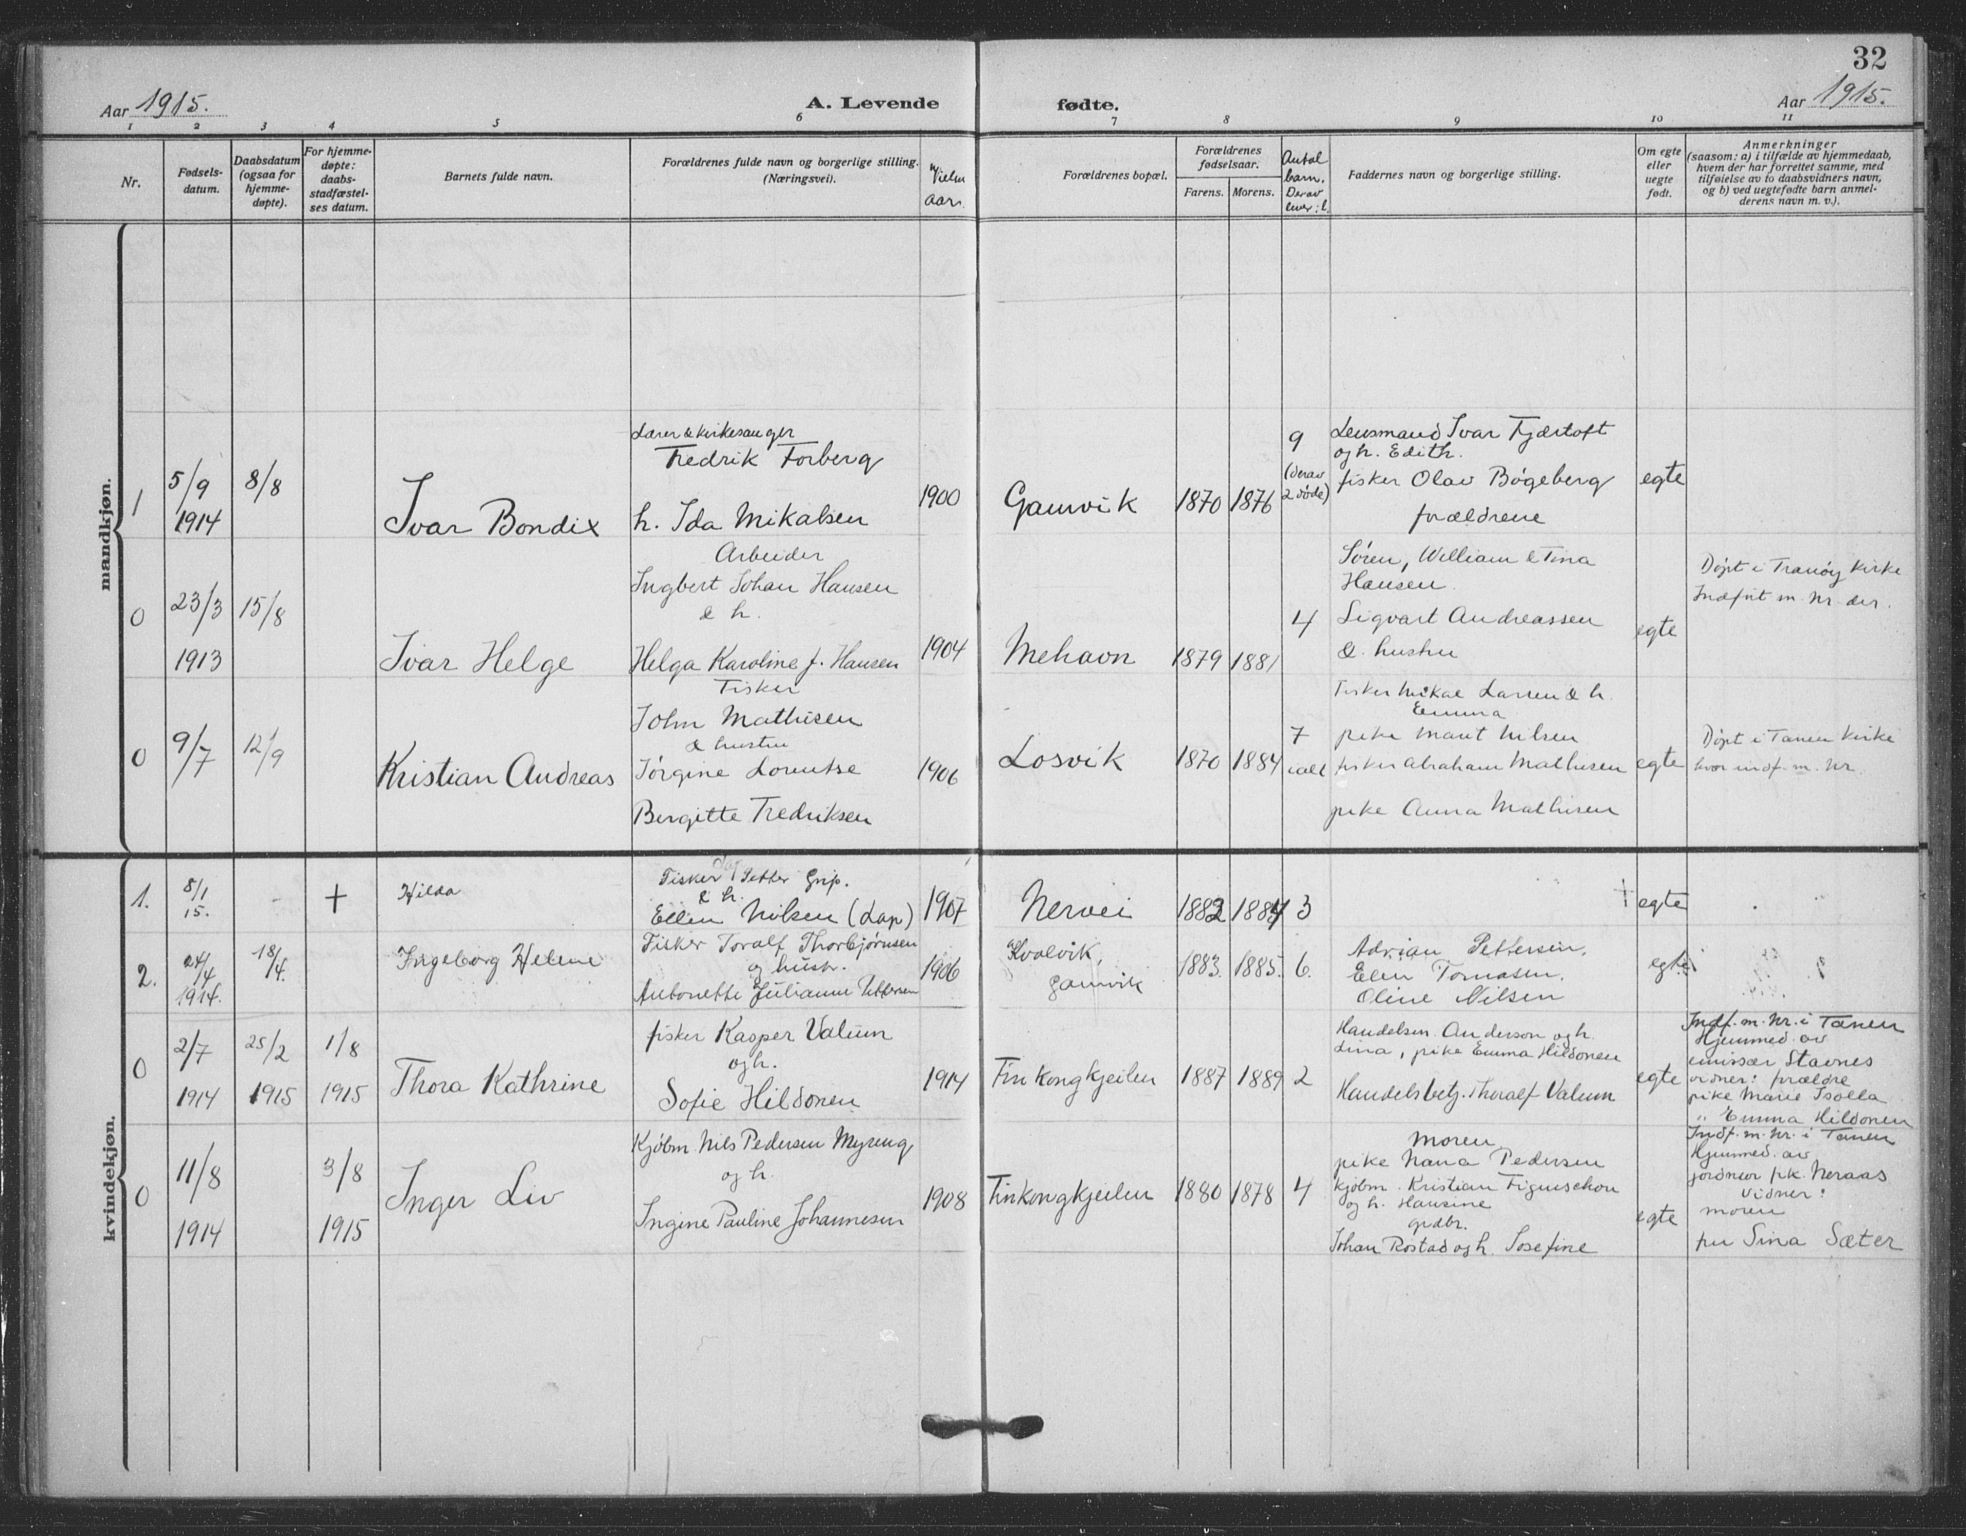 32
Aar 1915.
A. Levende fødte.
Aar 1915.
1 2 3 4 5 6 7 8 9 10 11
Nr.
Fødsels-
datum.
Daabsdatum
(ogsaa for
hjemme-
døpte).
For hjemme-
døpte:
daabs-
stadfæstel-
ses datum.
Barnets fulde navn.
Forældrenes fulde navn og borgerlige stilling.
(Næringsvei).
Vielses
aar.
Forældrenes bopæl.
Forældrenes
fødselsaar.
Farens. Morens.
Antal
barn.
Derav
Faddernes navn og borgerlige stilling.
Om egte
eller
uegte
født.
Anmerkninger
(saasom: a) i tilfælde av hjemmedaab,
hvem der har forrettet samme, med
tilføielse av to daabsvidners navn,
og b) ved uegtefødte barn anmel-
derens navn m. v.).
mandkjøn.
1
5/9
1914
8/8
Ivar Bondix
Lærer & kirkesanger
Fredrik Forberg
h. Ida Mikalsen
1900
Gamvik
1870 1876
9
(derav
2 døde)
Lensmand Ivar Fjærtoft
og h. Edith.
fisker Olav Bøgeberg
forældrene
egte
0
23/3
1913
15/8
Ivar Helge
Arbeider
Ingbert Johan Hansen
& h.
Helga Karoline f. Hansen
1904
Mehavn
1879 1881
4
Søren, William & Tina
Hansen.
Sigvart Andreassen
& hustru
egte
Døpt i Tranøy Kirke
Indført m. Nr. der.
0
9/7
12/9
Kristian Andreas
Fisker
John Mathisen
& hustru
Jørgine Lorentse
Birgitte Fredriksen
1906
Losvik
1870 1884
7
ialt
Fisker Mikal Larsen & h.
Emma
pike Marit Nilsen
fisker Abraham Mathisen
pike Anna Mathisen
egte
Døpt i Tanen Kirke
hvor indf. m. Nr.
kvindekjøn.
1.
8/1
15.
-
+
Hilda
Fisker Petter Grip.
& h.
Ellen Nilsen (Lap)
1907
Nervei
1882 1884 3
+ egte
2.
24/4
1914.
18/4.
Ingeborg Helene
Fisker Toralf Thorbjørnsen
og hustr.
Antonette Julianne Pettersen
1906
Kvalvik,
Gamvik
1883. 1885. 6.
Adrian Pettersen.
Elen Tomasen.
Oline Nilsen
egte
0
2/7
1914
25/2
1915
1/8
1915
Thora Kathrine
fisker Kasper Valum
og h.
Sofie Hildonen
1914
Finkongkjeilen
1887 1889 2
Handelsm. Anderson og h.
Lina, pike Emma Hildonen
Handelsbetj. Thoralf Valum
egte
Indf. m. Nr. i Tanen
Hjemmed. av
emissær Stavnes
vidner: forældre
pike Marie Isolla
" Emma Hildonen
0
11/8
1914
3/8
1915
Inger Liv
Kjøbm. Nils Pedersen Myreng
og h.
Ingine Pauline Johannesen
1908
Finkongkjeilen
1880 1878 4
moren
pike Nana Pedersen
kjøbm. Kristian Figenschou
og h. Hansine
grdbr.
Johan Rostad og h. Josefine
egte
Indf. m. Nr. i Tanen
Hjemmed. av
jordmor frk. Neraas
Vidner:
moren
fru Sina Sæter